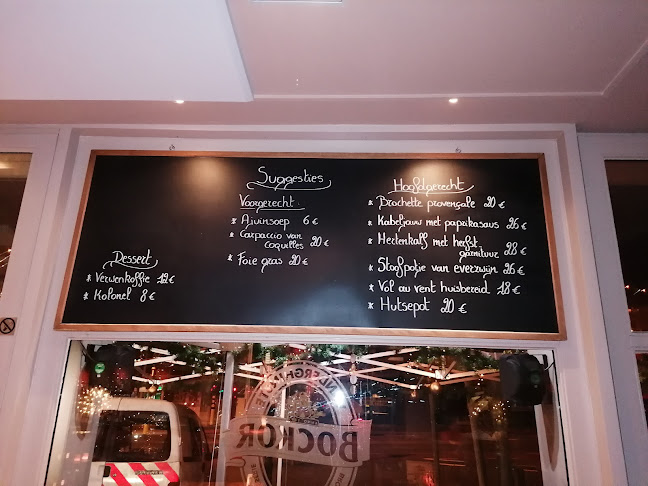 Suggesties
Voorgerecht:
* Ajuinsoep 6 €
* Carpaccio van
coquelles 20 €
* Foie gras 20 €
Hoofdgerecht
* Brochette provençale 20 €
* Kabeljauw met paprikasaus 26 €
* Hertenkalf met herfst
garnituur 28 €
* Stoofpotje van everzwijn 26 €
* Vol au vent huisbereid 18 €
* Hutsepot 20 €
Dessert
* Verwenkoffie 12 €
* Kolonel 8 €
BOCKOR